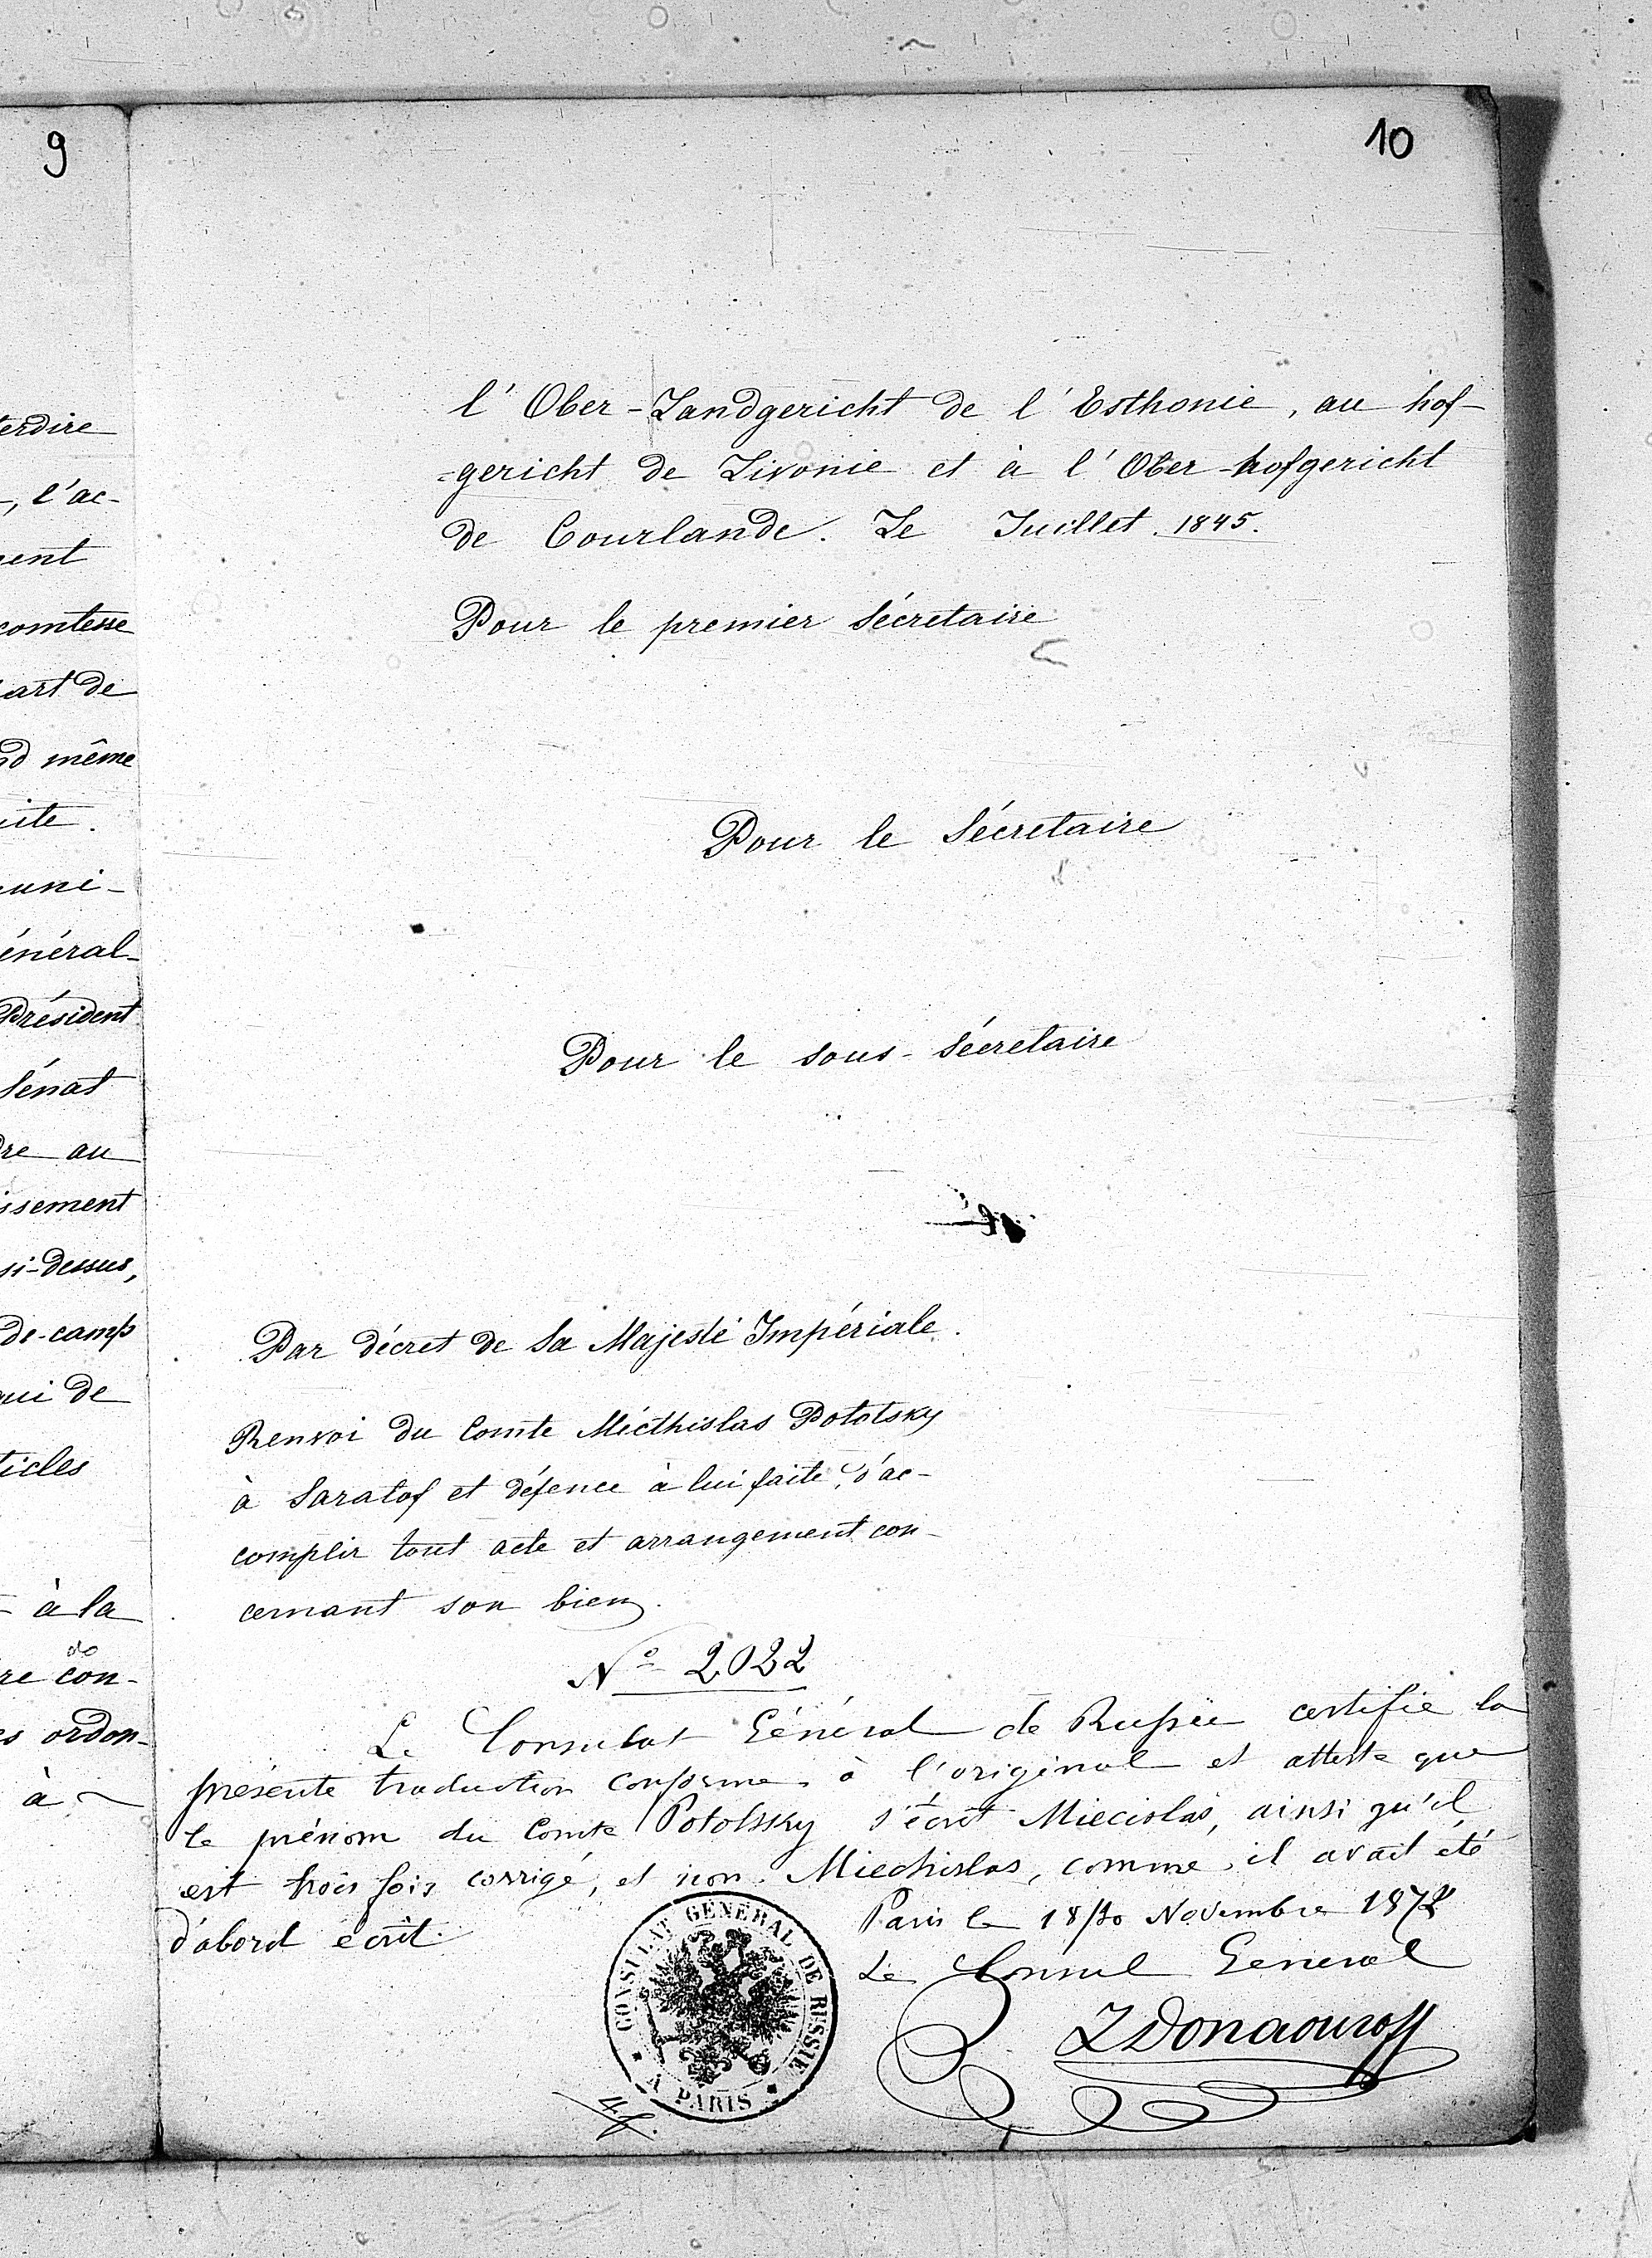 9
terdire
-, l'ac-
ment
comtesse
part de
nd même
uite.
uni-
énéral-
Président
Sénat
dre au
issement
si-dessus,
de-camp
qui de
ticles
à la
do
re con-
s ordon-
à
10
l'Ober-Landgericht de l'Esthonie, au hof-
=gericht de Livonie et à l'Ober-hofgericht
de Courlande. Le Juillet. 1845.
Pour le premier Sécretaire
Pour le Sécretaire
Pour le sous-Sécretaire
Par décret de Sa Majesté Impériale.
Renvoi du Comte Miécthislas Pototsky
à Saratof et défence à lui faite, d'ac-
complir tout acte et arrangement con-
cernant son bien.
Nº 2022
Le Consulat Général de Russie certifie la
présente traduction conforme à l'original et atteste que
le prénom du Comte Pototsky s'écrit Mieciolas, ainsi qu'il
est trois fois corrigé, et non Miechislas, comme il avait été
d'abord écrit.
Paris le 18/30 Novembre 1872
Le Consul General
Donaouroff
CONSULAT GÉNÉRAL DE RUSSIE
A PARIS